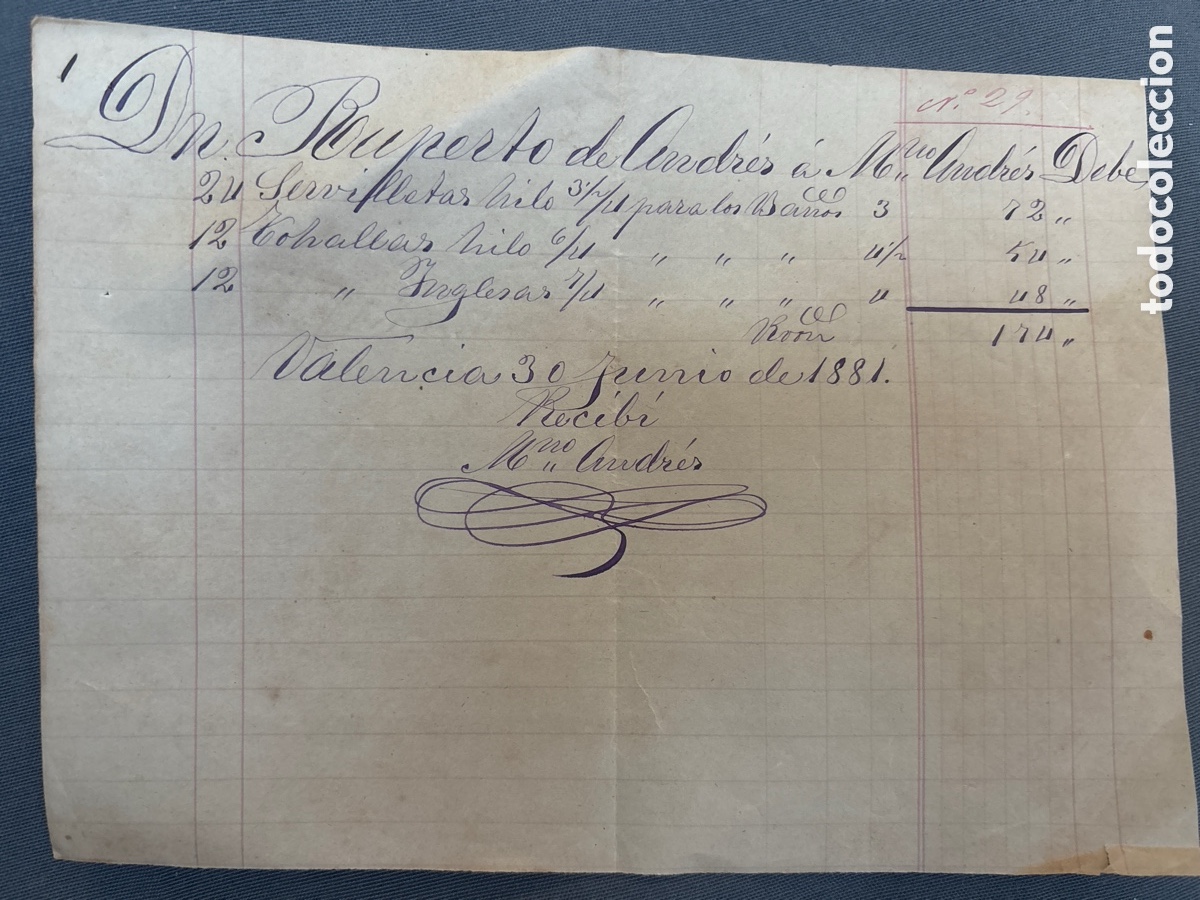 Nº 29.
Dn. Ruperto de Andrés á Mno Andrés Debe
24 Servilletas hilo 3½/4 para los Baños 3 72 „
12 Tohallas hilo 6/4 „ „ „ 4½ 54 „
12 „ Inglesas 7/4 „ „ „ 4 48 „
Rvon 174 „
Valencia 30 Junio de 1881.
Recibí
Mno Andrés
todocoleccion